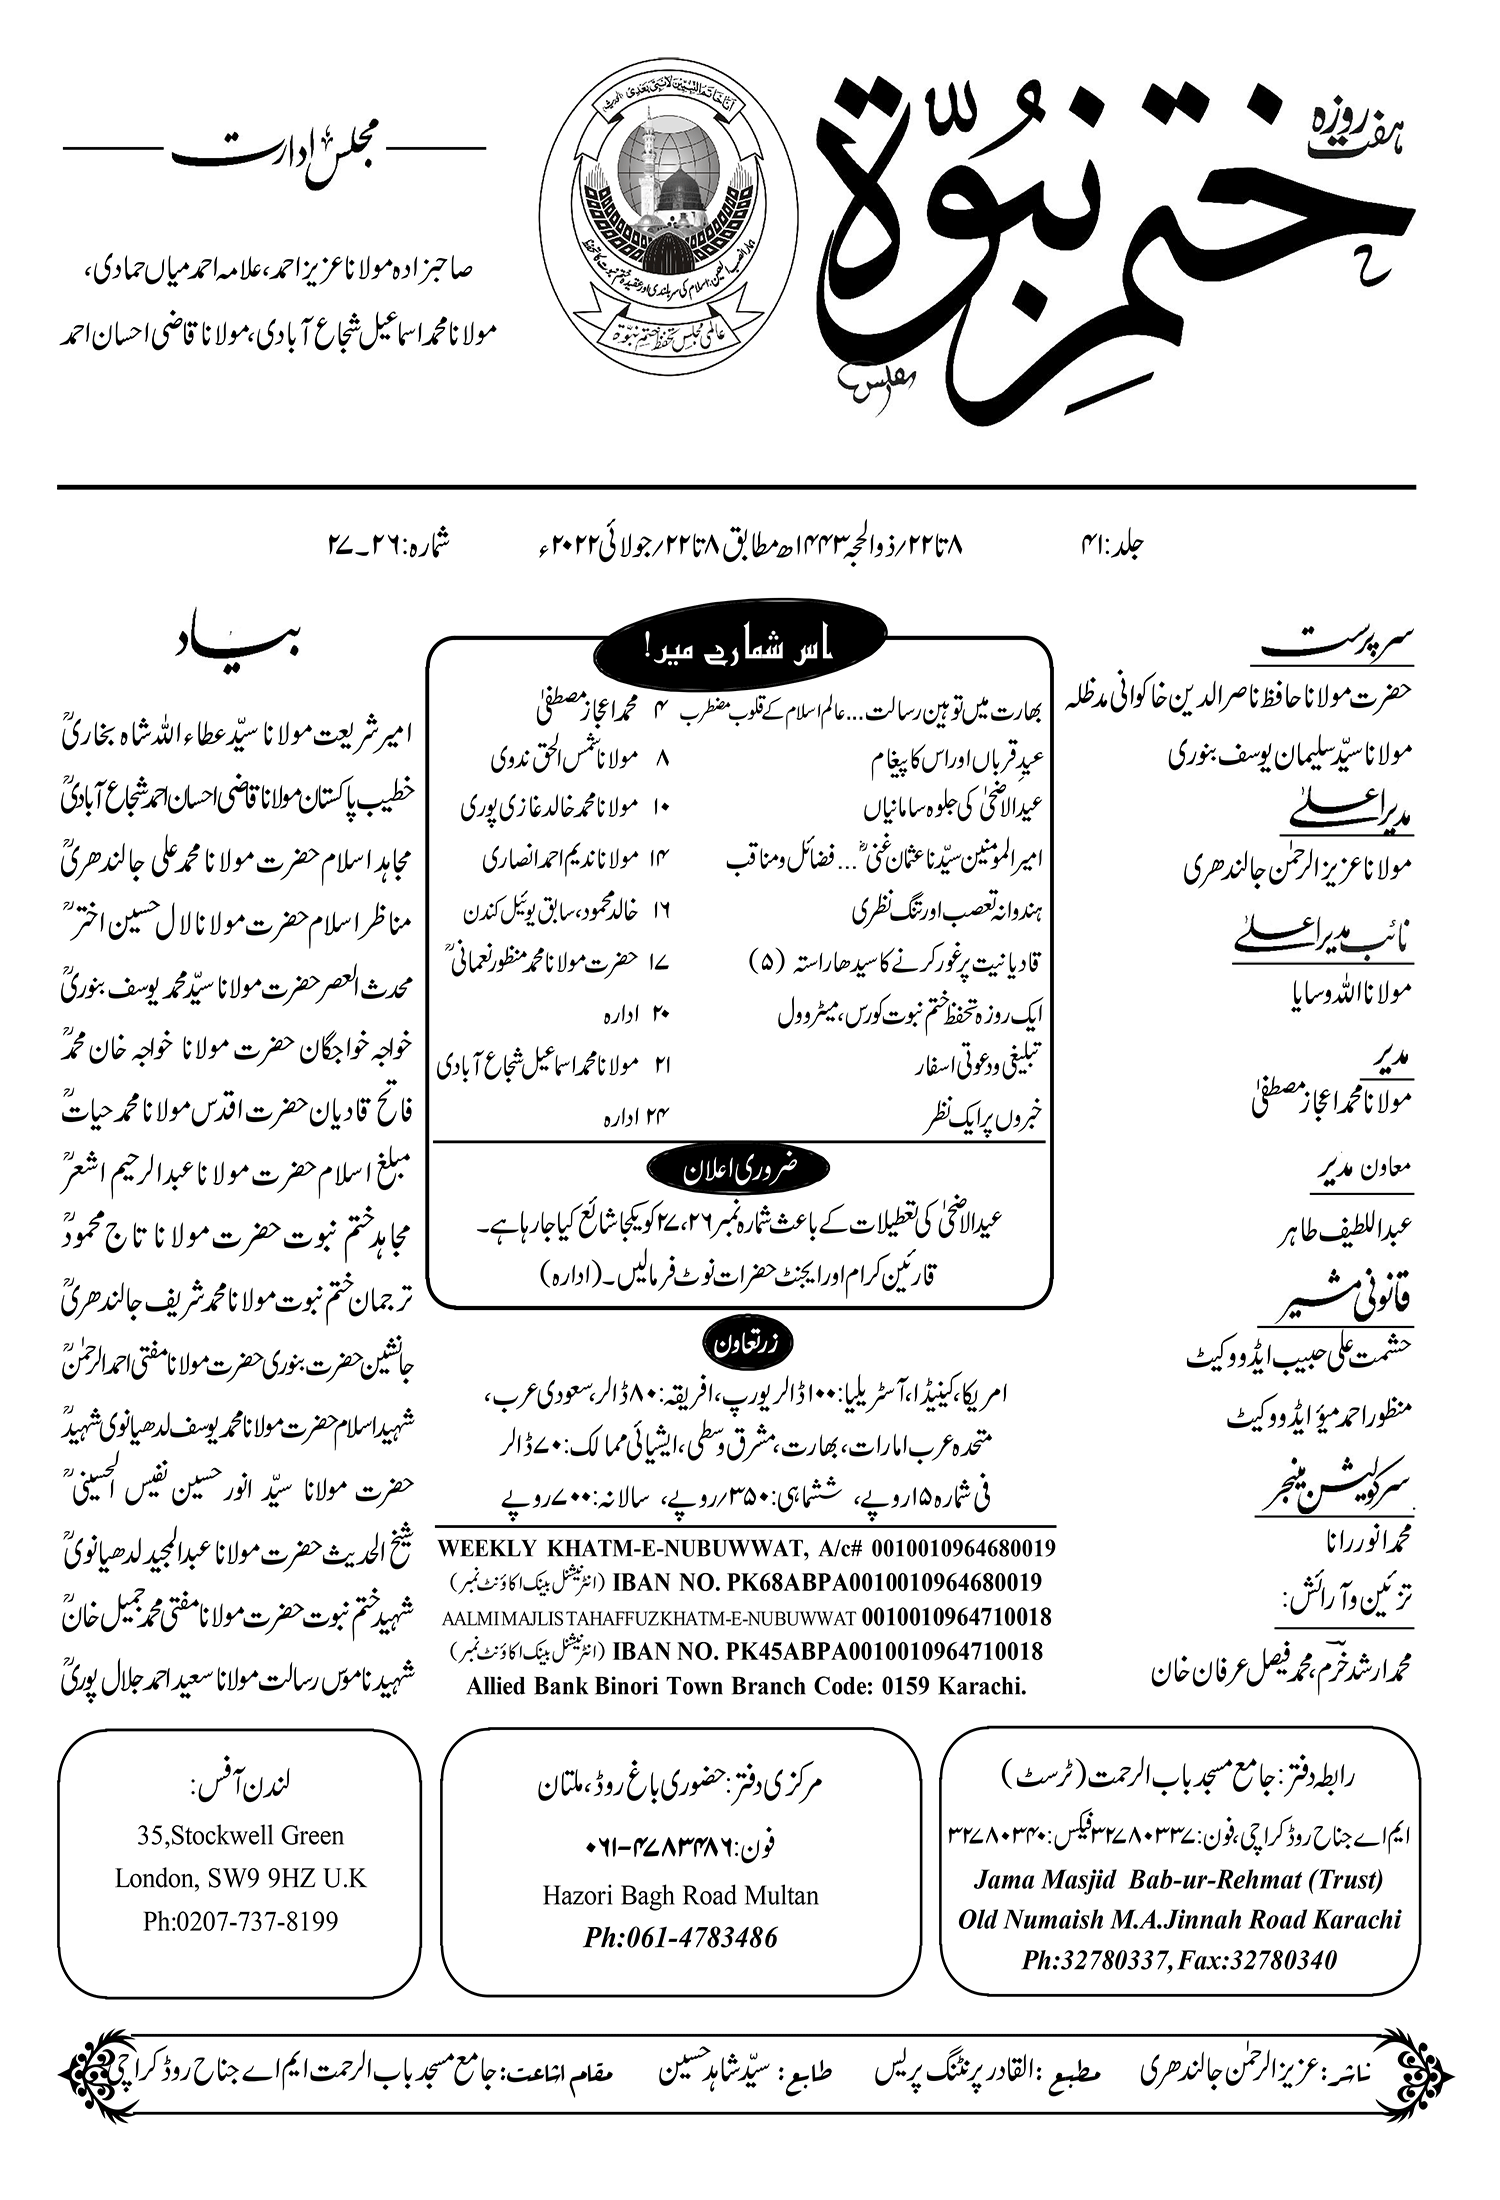 ہفت روزہ
ختم نبوّة
اَنَا خَاتَمُ النَّبِيِّيْنَ لَا نَبِيَّ بَعْدِيْ
عالمی مجلس تحفظ ختم نبوّة
مجلس ادارت
صاحبزادہ مولانا عزیز احمد، علامہ احمد میاں حمادی،
مولانا محمد اسماعیل شجاع آبادی، مولانا قاضی احسان احمد
جلد: ۴۱
۸ تا ۲۲/ ذوالحجہ ۱۴۴۳ھ مطابق ۸ تا ۲۲/ جولائی ۲۰۲۲ء
شمارہ: ۲۶۔۲۷
سرپرست
حضرت مولانا حافظ ناصر الدین خاکوانی مدظلہ
مولانا سیّد سلیمان یوسف بنوری
مدیر اعلےٰ
مولانا عزیز الرحمٰن جالندھری
نائب مدیر اعلےٰ
مولانا اللہ وسایا
مدیر
مولانا محمد اعجاز مصطفیٰ
معاون مدیر
عبداللطیف طاہر
قانونی مشیر
حشمت علی حبیب ایڈووکیٹ
منظور احمد میؤ ایڈووکیٹ
سرکولیشن مینجر
محمد انور رانا
تزئین و آرائش:
محمد ارشد خرم، محمد فیصل عرفان خان
اس شمارے میں!
بھارت میں توہین رسالت... عالم اسلام کے قلوب مضطرب ۴ محمد اعجاز مصطفیٰ
عیدِ قرباں اور اس کا پیغام ۸ مولانا شمس الحق ندوی
عید الاضحیٰ کی جلوہ سامانیاں ۱۰ مولانا محمد خالد غازی پوری
امیر المؤمنین سیّدنا عثمان غنیؓ... فضائل و مناقب ۱۴ مولانا ندیم احمد انصاری
ہندوانہ تعصب اور تنگ نظری ۱۶ خالد محمود، سابق یوئیل کندن
قادیانیت پر غور کرنے کا سیدھا راستہ (۵) ۱۷ حضرت مولانا محمد منظور نعمانیؒ
ایک روزہ تحفظ ختم نبوت کورس، میٹرو ول ۲۰ ادارہ
تبلیغی و دعوتی اسفار ۲۱ مولانا محمد اسماعیل شجاع آبادی
خبروں پر ایک نظر ۲۴ ادارہ
ضروری اعلان
عید الاضحیٰ کی تعطیلات کے باعث شمارہ نمبر ۲۶، ۲۷ کو یکجا شائع کیا جا رہا ہے۔
قارئین کرام اور ایجنٹ حضرات نوٹ فرمالیں۔ (ادارہ)
زرتعاون
امریکا، کینیڈا، آسٹریلیا: ۱۰۰ ڈالر یورپ، افریقہ: ۸۰ ڈالر، سعودی عرب،
متحدہ عرب امارات، بھارت، مشرق وسطی، ایشیائی ممالک: ۷۰ ڈالر
فی شمارہ ۱۵ روپے، ششماہی: ۳۵۰/روپے، سالانہ: ۷۰۰ روپے
WEEKLY KHATM-E-NUBUWWAT, A/c# 0010010964680019
IBAN NO. PK68ABPA0010010964680019 (انٹرنیشنل بینک اکاؤنٹ نمبر)
AALMI MAJLIS TAHAFFUZ KHATM-E-NUBUWWAT 0010010964710018
IBAN NO. PK45ABPA0010010964710018 (انٹرنیشنل بینک اکاؤنٹ نمبر)
Allied Bank Binori Town Branch Code: 0159 Karachi.
بیاد
امیر شریعت مولانا سیّد عطاء اللہ شاہ بخاریؒ
خطیب پاکستان مولانا قاضی احسان احمد شجاع آبادیؒ
مجاہد اسلام حضرت مولانا محمد علی جالندھریؒ
مناظر اسلام حضرت مولانا لال حسین اخترؒ
محدث العصر حضرت مولانا سیّد محمد یوسف بنوریؒ
خواجہ خواجگان حضرت مولانا خواجہ خان محمدؒ
فاتح قادیان حضرت اقدس مولانا محمد حیاتؒ
مبلغ اسلام حضرت مولانا عبدالرحیم اشعرؒ
مجاہد ختم نبوت حضرت مولانا تاج محمودؒ
ترجمان ختم نبوت مولانا محمد شریف جالندھریؒ
جانشین حضرت بنوری حضرت مولانا مفتی احمد الرحمٰنؒ
شہید اسلام حضرت مولانا محمد یوسف لدھیانوی شہیدؒ
حضرت مولانا سیّد انور حسین نفیس الحسینیؒ
شیخ الحدیث حضرت مولانا عبدالمجید لدھیانویؒ
شہید ختم نبوت حضرت مولانا مفتی محمد جمیل خانؒ
شہید ناموس رسالت مولانا سعید احمد جلال پوریؒ
رابطہ دفتر: جامع مسجد باب الرحمت (ٹرسٹ)
ایم اے جناح روڈ کراچی، فون: ۳۲۷۸۰۳۳۷ فیکس: ۳۲۷۸۰۳۴۰
Jama Masjid Bab-ur-Rehmat (Trust)
Old Numaish M.A.Jinnah Road Karachi
Ph:32780337, Fax:32780340
مرکزی دفتر: حضوری باغ روڈ، ملتان
فون: ۰۶۱-۴۷۸۳۴۸۶
Hazori Bagh Road Multan
Ph:061-4783486
لندن آفس:
35,Stockwell Green
London, SW9 9HZ U.K
Ph:0207-737-8199
ناشر: عزیز الرحمٰن جالندھری مطبع: القادر پرنٹنگ پریس طابع: سیّد شاہد حسین مقام اشاعت: جامع مسجد باب الرحمت ایم اے جناح روڈ کراچی